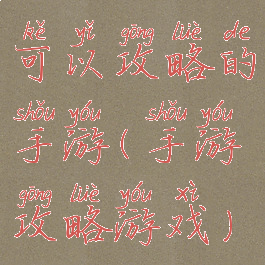 kě yǐ gōng lüè de
可以攻略的
shǒu yóu shǒu yóu
手游(手游
gōng lüè yóu xì
攻略游戏)